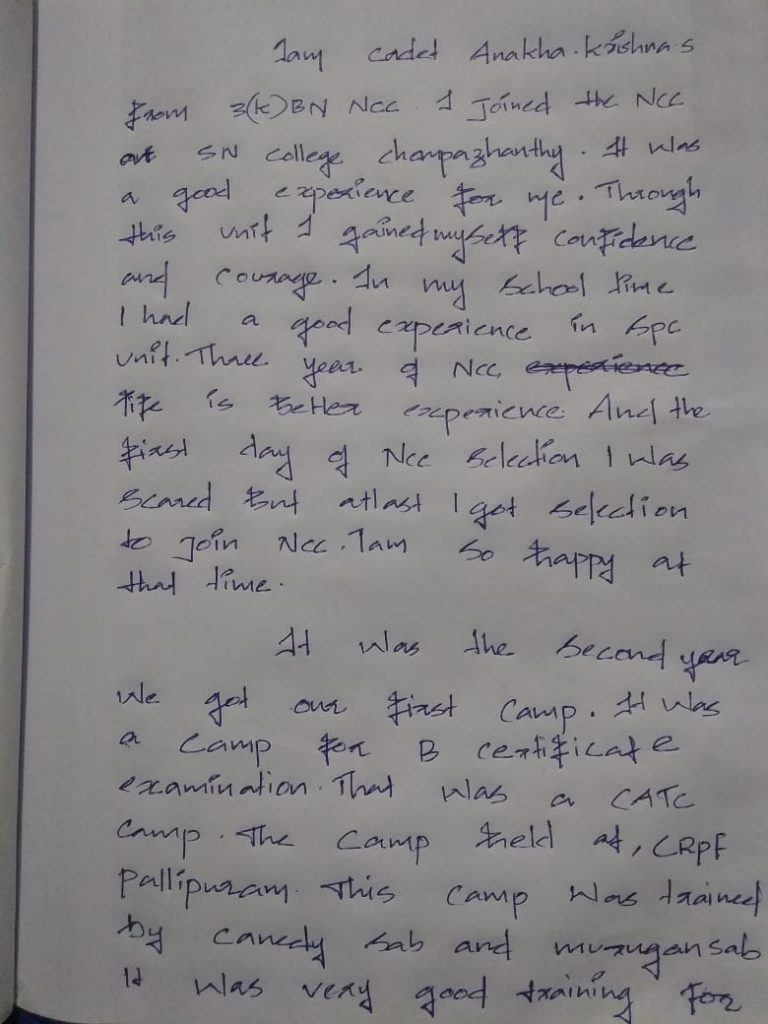 Iam cadet Anakha.krishna.s
from 3(k)BN NCC. I Joined the NCC
at SN College chempazhanthy. It was
a good experience for me. Through
this unit I gained myself confidence
and courage. In my school time
I had a good experience in spc
unit. Three year of NCC experience
life is better experience. And the
first day of Ncc selection I was
scared But atlast I got selection
to join Ncc. Iam so happy at
that time.
It was the second year
We got our first camp. It was
a camp for B certificate
examination. That was a CATC
camp. The camp held at, CRPF
Pallipuram. This camp was trained
by canedy sab and murugan sab
It was very good training for